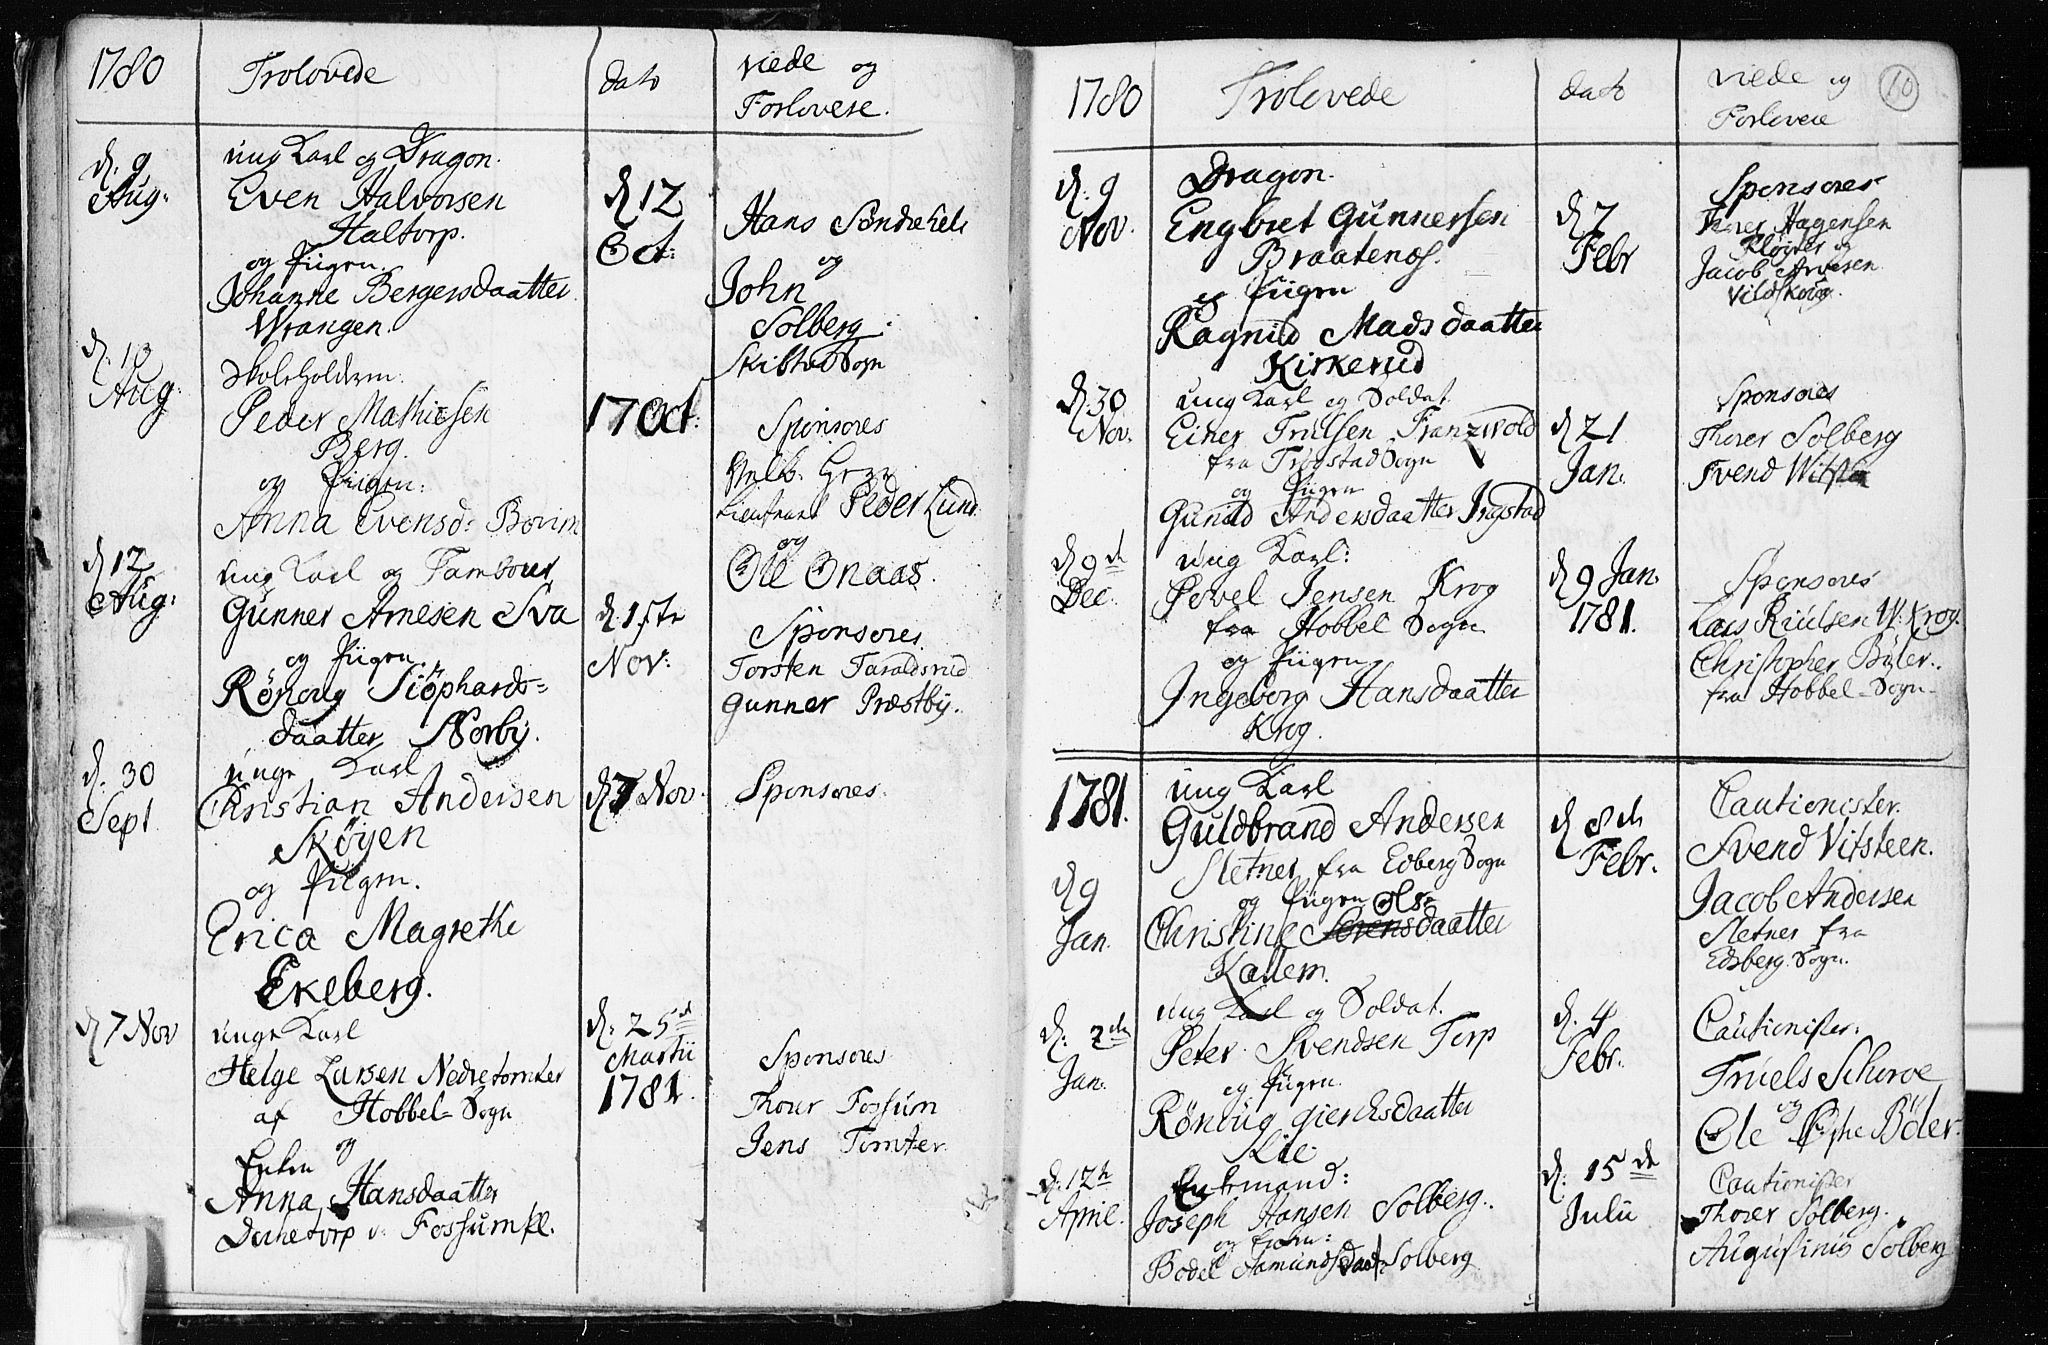 1780
Trolovede
dato
viede og
Forlovere.
d. 9
Aug:
ung Karl og Dragon.
Even Halvorsen
Haltorp.
og Pigen.
Johanne Bergersdaatter
Wrangen.
d. 12
Oct:
Hans Søndrehele
og
John
Solberg.
Skibtved Sogn
d. 10
Aug
Skoleholderen.
Peder Mathiesen
Berg.
og Pigen:
Anna Evensd: Bovim
17 Oct:
Sponsores
Lieutnant Peder Lund
og
Ole Onaas.
d 12
Aug:
ung Karl og Tambour
Gunner Arnesen Sva
og Pigen.
Rønoug Siöphards-
daatter Norby.
d. 1ste
Nov:
Sponsores
Torsten Taraldsrud
Gunner Præstby.
d. 30
Sept
unge Karl
Christian Andersen
Skøyen
og Pigen.
Erica Magrethe
Ekeberg.
d 7 Nov.
Sponsores.
d 7 Nov
unge Karl
Helge Larsen Nedretomter
af Hobbel-Sogn
og
Enken
Anna Hansdaatter
Fossum
d: 25d
Martii
1781.
Sponsores
Thorer Fossum
Jens Tomter
10
1780
Trolovede
dato
viede og
Forlovere
d: 9
Nov.
Dragon.
Engbret Gunnersen
Braatenes.
og Pigen
Ragnild Madsdaatter
Kirkerud
d 7
Febr
Sponsores
Hagensen
Kløgter og
Jacob Arvesen
Vildskoug.
d. 30
Nov.
ung Karl og Soldat
Einer Trulsen Franzvold
fra Trøgstad Sogn
og Pigen
Gunild Andersdaatter Trøgstad
d 21
Jan.
Sponsores
Thorer Solberg
Svend Witsten
d 9de
Dec.
ung Karl:
Povel Jensen Krog
fra Hobbel Sogn
og Pigen
Ingeborg Hansdaatter
Krog.
d 9 Jan.
1781.
Sponsores
Lars Krog.
Christopher Bøler.
fra Hobbel-Sogn-
1781.
d 9
Jan.
ung Karl
Guldbrand Andersen
Sletner fra Edberg Sogn
og Pigen Ols-
Christine Sørensdaatter
Kallem.
d 8de
Febr.
Cautionister.
Svend Vitsteen.
Jacob Andersen
Sletner fra
Edsberg. Sogn.
d: 2de
Jan.
ung Karl og Soldat.
Peter Svendsen Torp
og Pigen.
Rønnug Gierdsdaatter
d: 4
Febr.
Cautionister.
Truels
og
Ole Bøler.
d: 12te
April.
Enkemand:
Joseph Hansen Solberg.
og Enken:
Bodel Aamundsdaat: Solberg
d: 15de
Julii
Cautionister
Thorer Solberg.
Augustinus Solberg